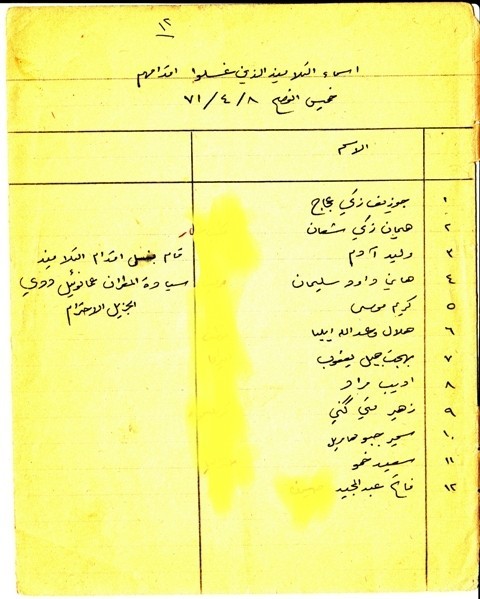 ١٢
اسماء التلاميذ الذين غسلوا اقدامهم
خميس الفصح ٨ / ٤ / ٧١
الاسم
١ جوزيف زكي عجاج
٢ همان زكي شعان
٣ وليد آدم
٤ هاني داود سليمان
٥ كريم موسى
٦ هلال وعدالله ايليا
٧ بهجت جميل يعقوب
٨ اديب مراد
٩ زهير متي گني
١٠ سمير ججو هامريل
١١ سعيد ححو
١٢ فاتح عبد المجيد
قام بغسل اقدام التلاميذ
سيادة المطران عمانوئيل ددي
الجزيل الاحترام